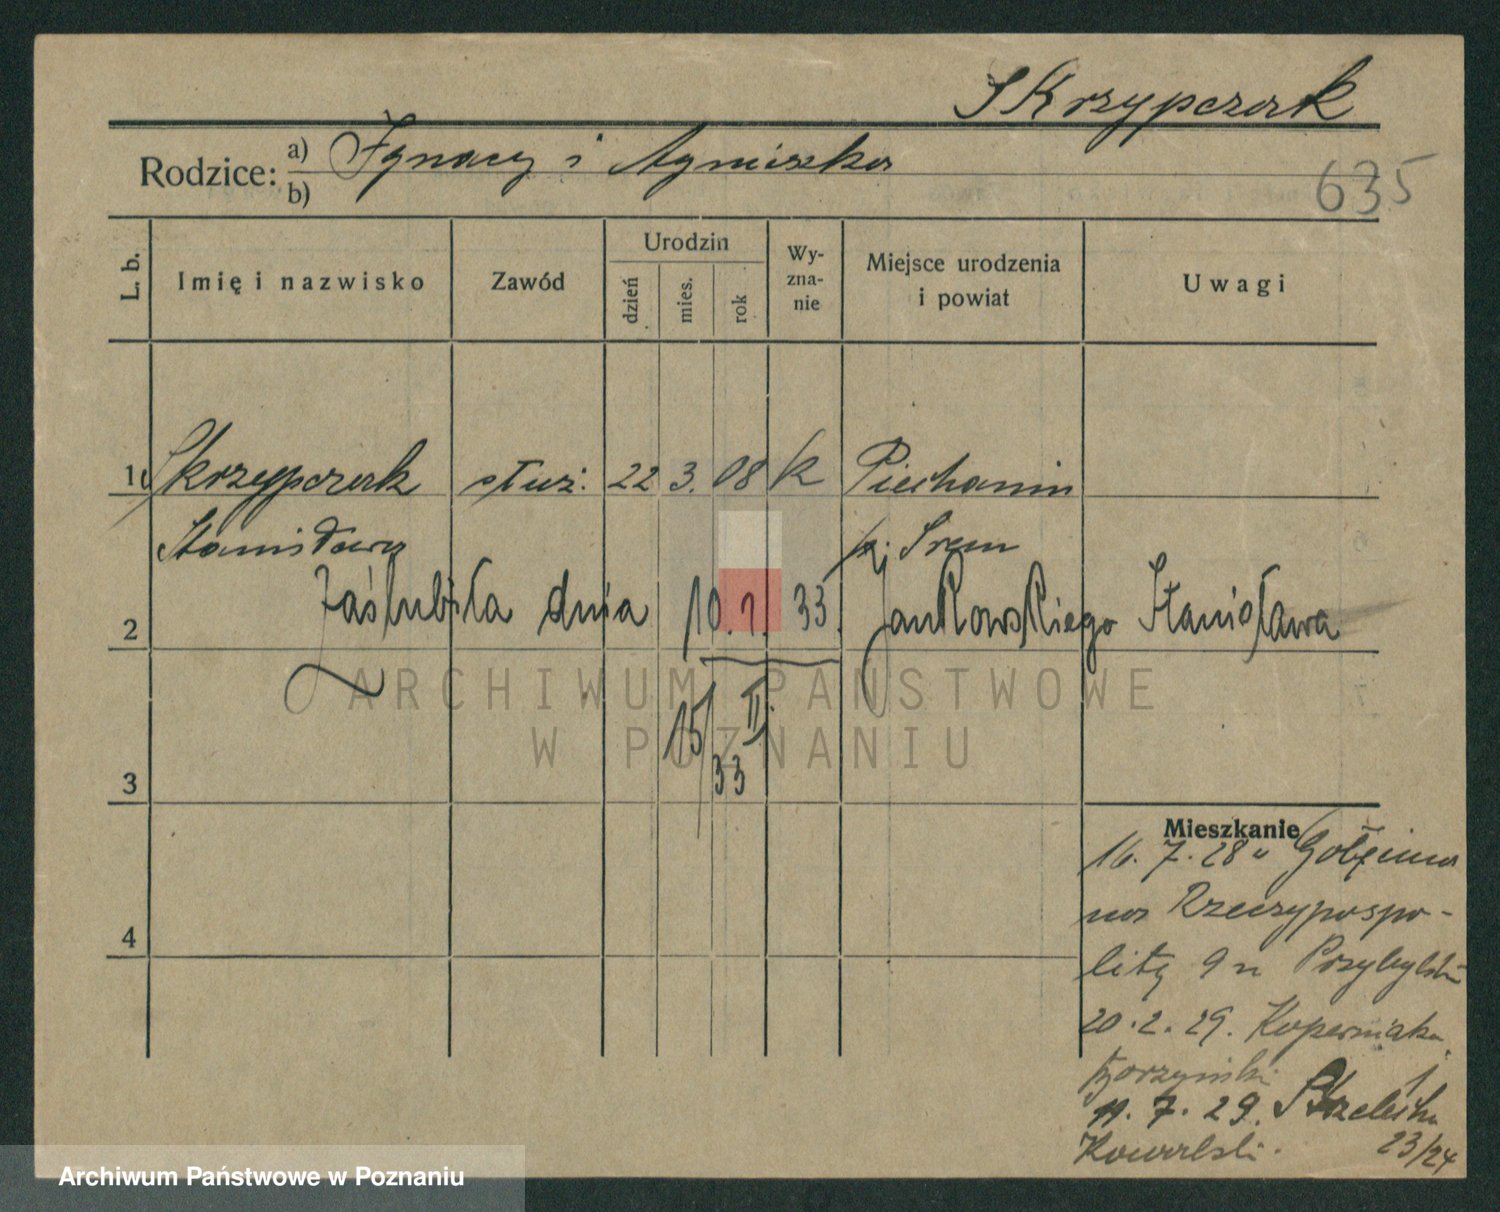 Skrzypczak
Rodzice: a) Ignacy i Agnieszka
b)
635
L. b. Imię i nazwisko Zawód Urodzin dzień mies. rok Wyzna-nie Miejsce urodzenia i powiat Uwagi
1 Skrzypczak służ. 22 3. 08 k Piechanin
Stanisława p. Śrem
2 Zaślubiła dnia 10. 1. 33. Jankowskiego Stanisława
ARCHIWUM PAŃSTWOWE
W POZNANIU
15/II 33
3
Mieszkanie
16. 7. 28 u Golęcina
na Rzeczypospo-
4
litą 9 u Przybylski
20. 2. 29. Kopernika
Gorzyński 1
11. 7. 29. Strzelecka
Kowalski. 23/24
Archiwum Państwowe w Poznaniu